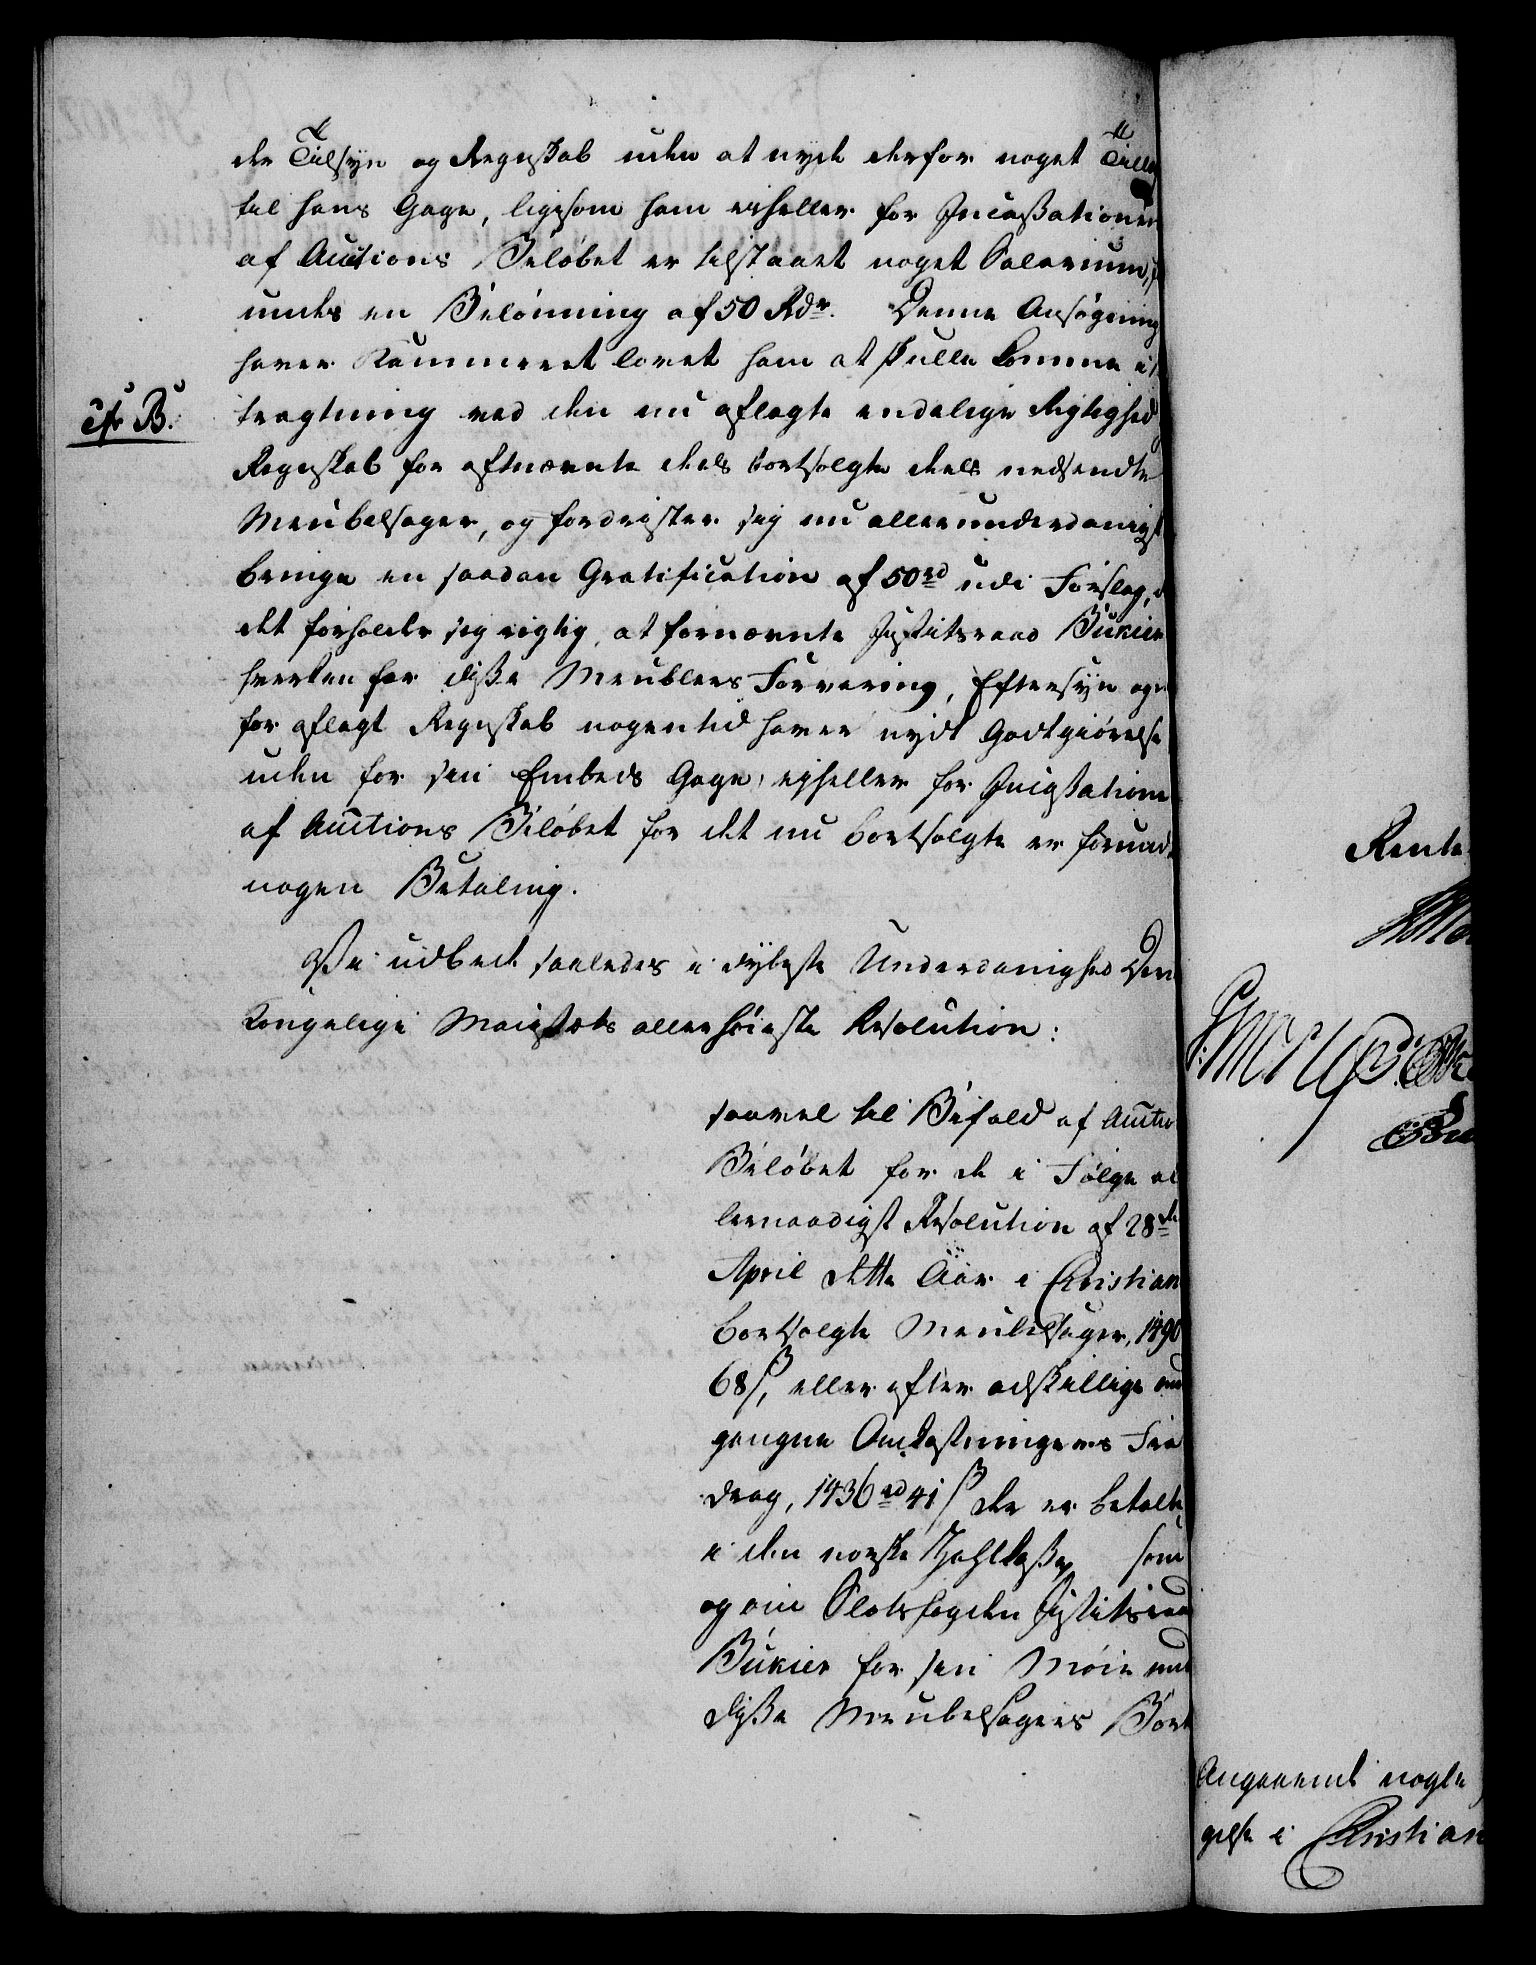 der Tilsyn og Regnskab uden at nyde derfor noget Tillæ
til hans Gage, ligesom ham eiheller for Incassationen
af Auctions Beløbet er tilstaaet noget Salarium,
undes en Belønning af 50 Rdr. Denne Ansøgning
haver Kammeret lovet ham at skulle komme i
cfr B.
tragtning ved den nu aflagte endelige Rigtighed
Regnskab for oftnævnte deels bortsolgte deels nedsendte
Meubelsager, og fordrister sig nu allerunderdanigst
bringe en saadan Gratification af 50 rd udi Forslag,
det forholder sig rigtig, at fornævnte Justitsraad Bukier
hverken for disse Meublers Forvaring, Eftersyn og
for aflagt Regnskab nogentid haver nydt Godtgiørelse
uden for sin Embeds Gage, eiheller for Incassationen
af Auctions Beløbet for det nu bortsolgte er forund
nogen Betaling.
Vi udbede saaledes i dybeste Underdanighed Der
Kongelige Maiestæts allerhøieste Resolution:
saavel til Bifald af Auctio
Beløbet for de i Følge al
lernaadigst Resolution af 28de
April dette Aar i Christian
bortsolgte Meubelsager, 1490
68 s, eller efter adskillige
gangne Omkostningers Fra
drag, 1436 rd 41 s der er betalte
i den norske Zahlkasse, som
og om Slotsfogden Justitsraad
Bukier for sin Møie med
disse Meubelsagers Bort
Rente
Angaaende nogle
gelse i Christian